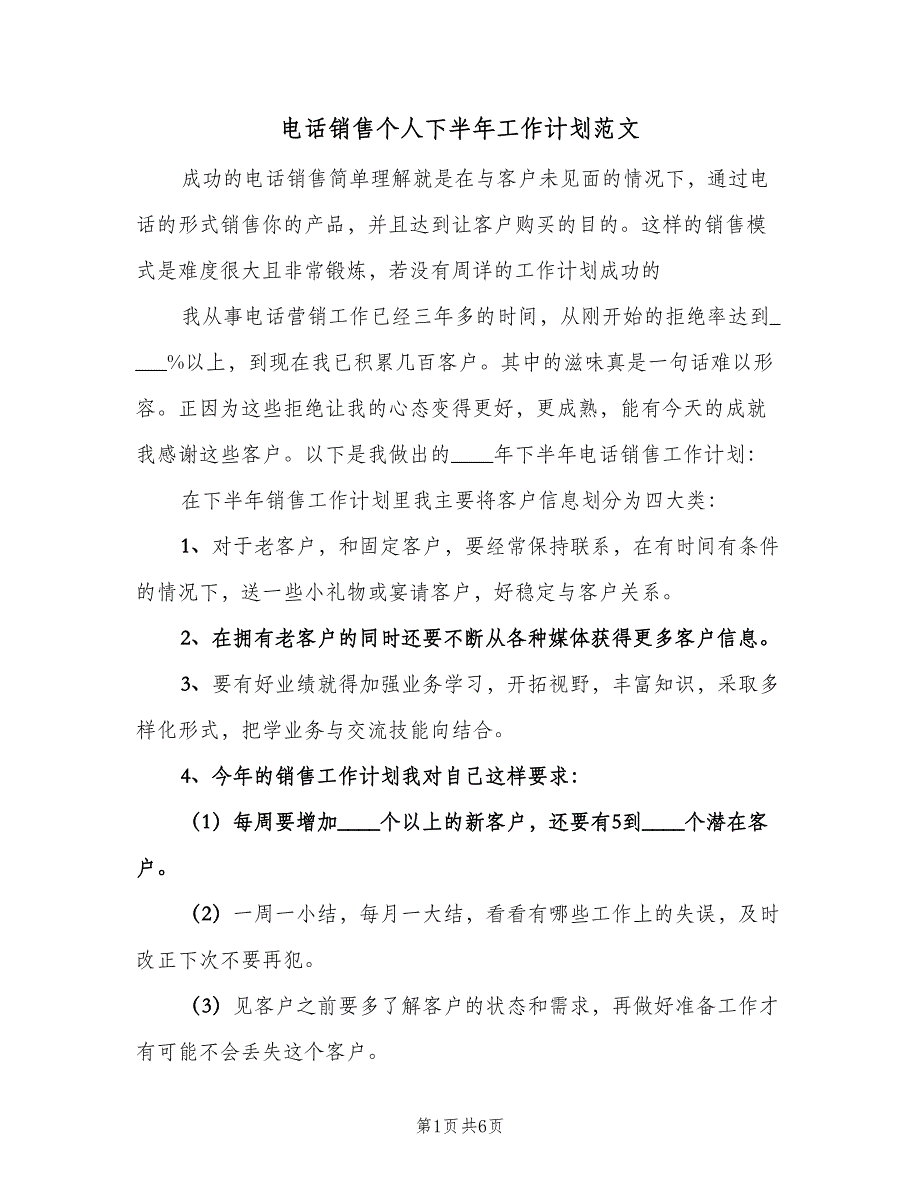 电话销售个人下半年工作计划范文
成功的电话销售简单理解就是在与客户未见面的情况下，通过电
话的形式销售你的产品，并且达到让客户购买的目的。这样的销售模
式是难度很大且非常锻炼，若没有周详的工作计划成功的
我从事电话营销工作已经三年多的时间，从刚开始的拒绝率达到_
___%以上，到现在我已积累几百客户。其中的滋味真是一句话难以形
容。正因为这些拒绝让我的心态变得更好，更成熟，能有今天的成就
我感谢这些客户。以下是我做出的____年下半年电话销售工作计划：
在下半年销售工作计划里我主要将客户信息划分为四大类：
1、对于老客户，和固定客户，要经常保持联系，在有时间有条件
的情况下，送一些小礼物或宴请客户，好稳定与客户关系。
2、在拥有老客户的同时还要不断从各种媒体获得更多客户信息。
3、要有好业绩就得加强业务学习，开拓视野，丰富知识，采取多
样化形式，把学业务与交流技能向结合。
4、今年的销售工作计划我对自己这样要求：
（1）每周要增加____个以上的新客户，还要有5到____个潜在客
户。
（2）一周一小结，每月一大结，看看有哪些工作上的失误，及时
改正下次不要再犯。
（3）见客户之前要多了解客户的状态和需求，再做好准备工作才
有可能不会丢失这个客户。
第1页 共6页